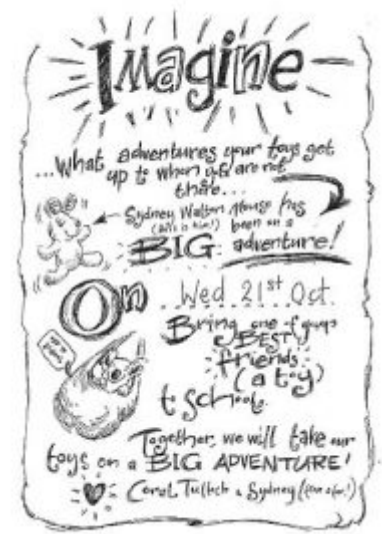 Imagine
...What adventures your toys get
up to when you are not
there...
Sydney Walton Mouse has
(this is him!) been on a
BIG adventure!
On Wed 21st Oct.
Bring one of your
BESTY
friends
(a toy)
to school.
Together, we will take our
toys on a BIG ADVENTURE!
Carol Tulloch & Sydney